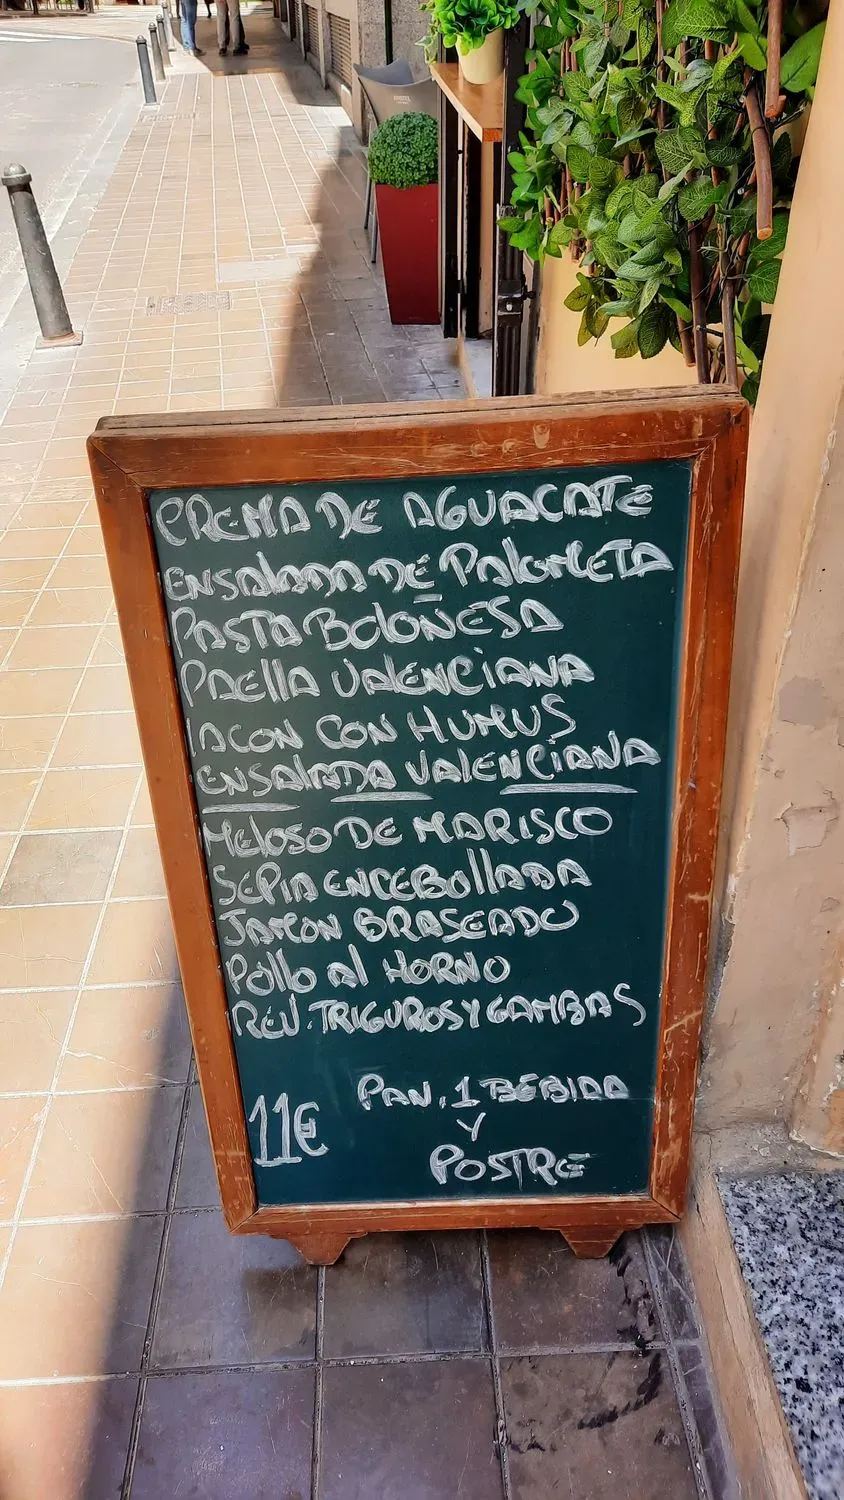 CREMA DE AGUACATE
ENSALADA DE PALOMETA
PASTA BOLOÑESA
PAELLA VALENCIANA
LACON CON HUMUS
ENSALADA VALENCIANA
MELOSO DE MARISCO
SEPIA ENCEBOLLADA
JAMON BRASEADO
POLLO AL HORNO
REV. TRIGUROS Y GAMBAS
PAN, 1 BEBIDA
11€ Y
POSTRE